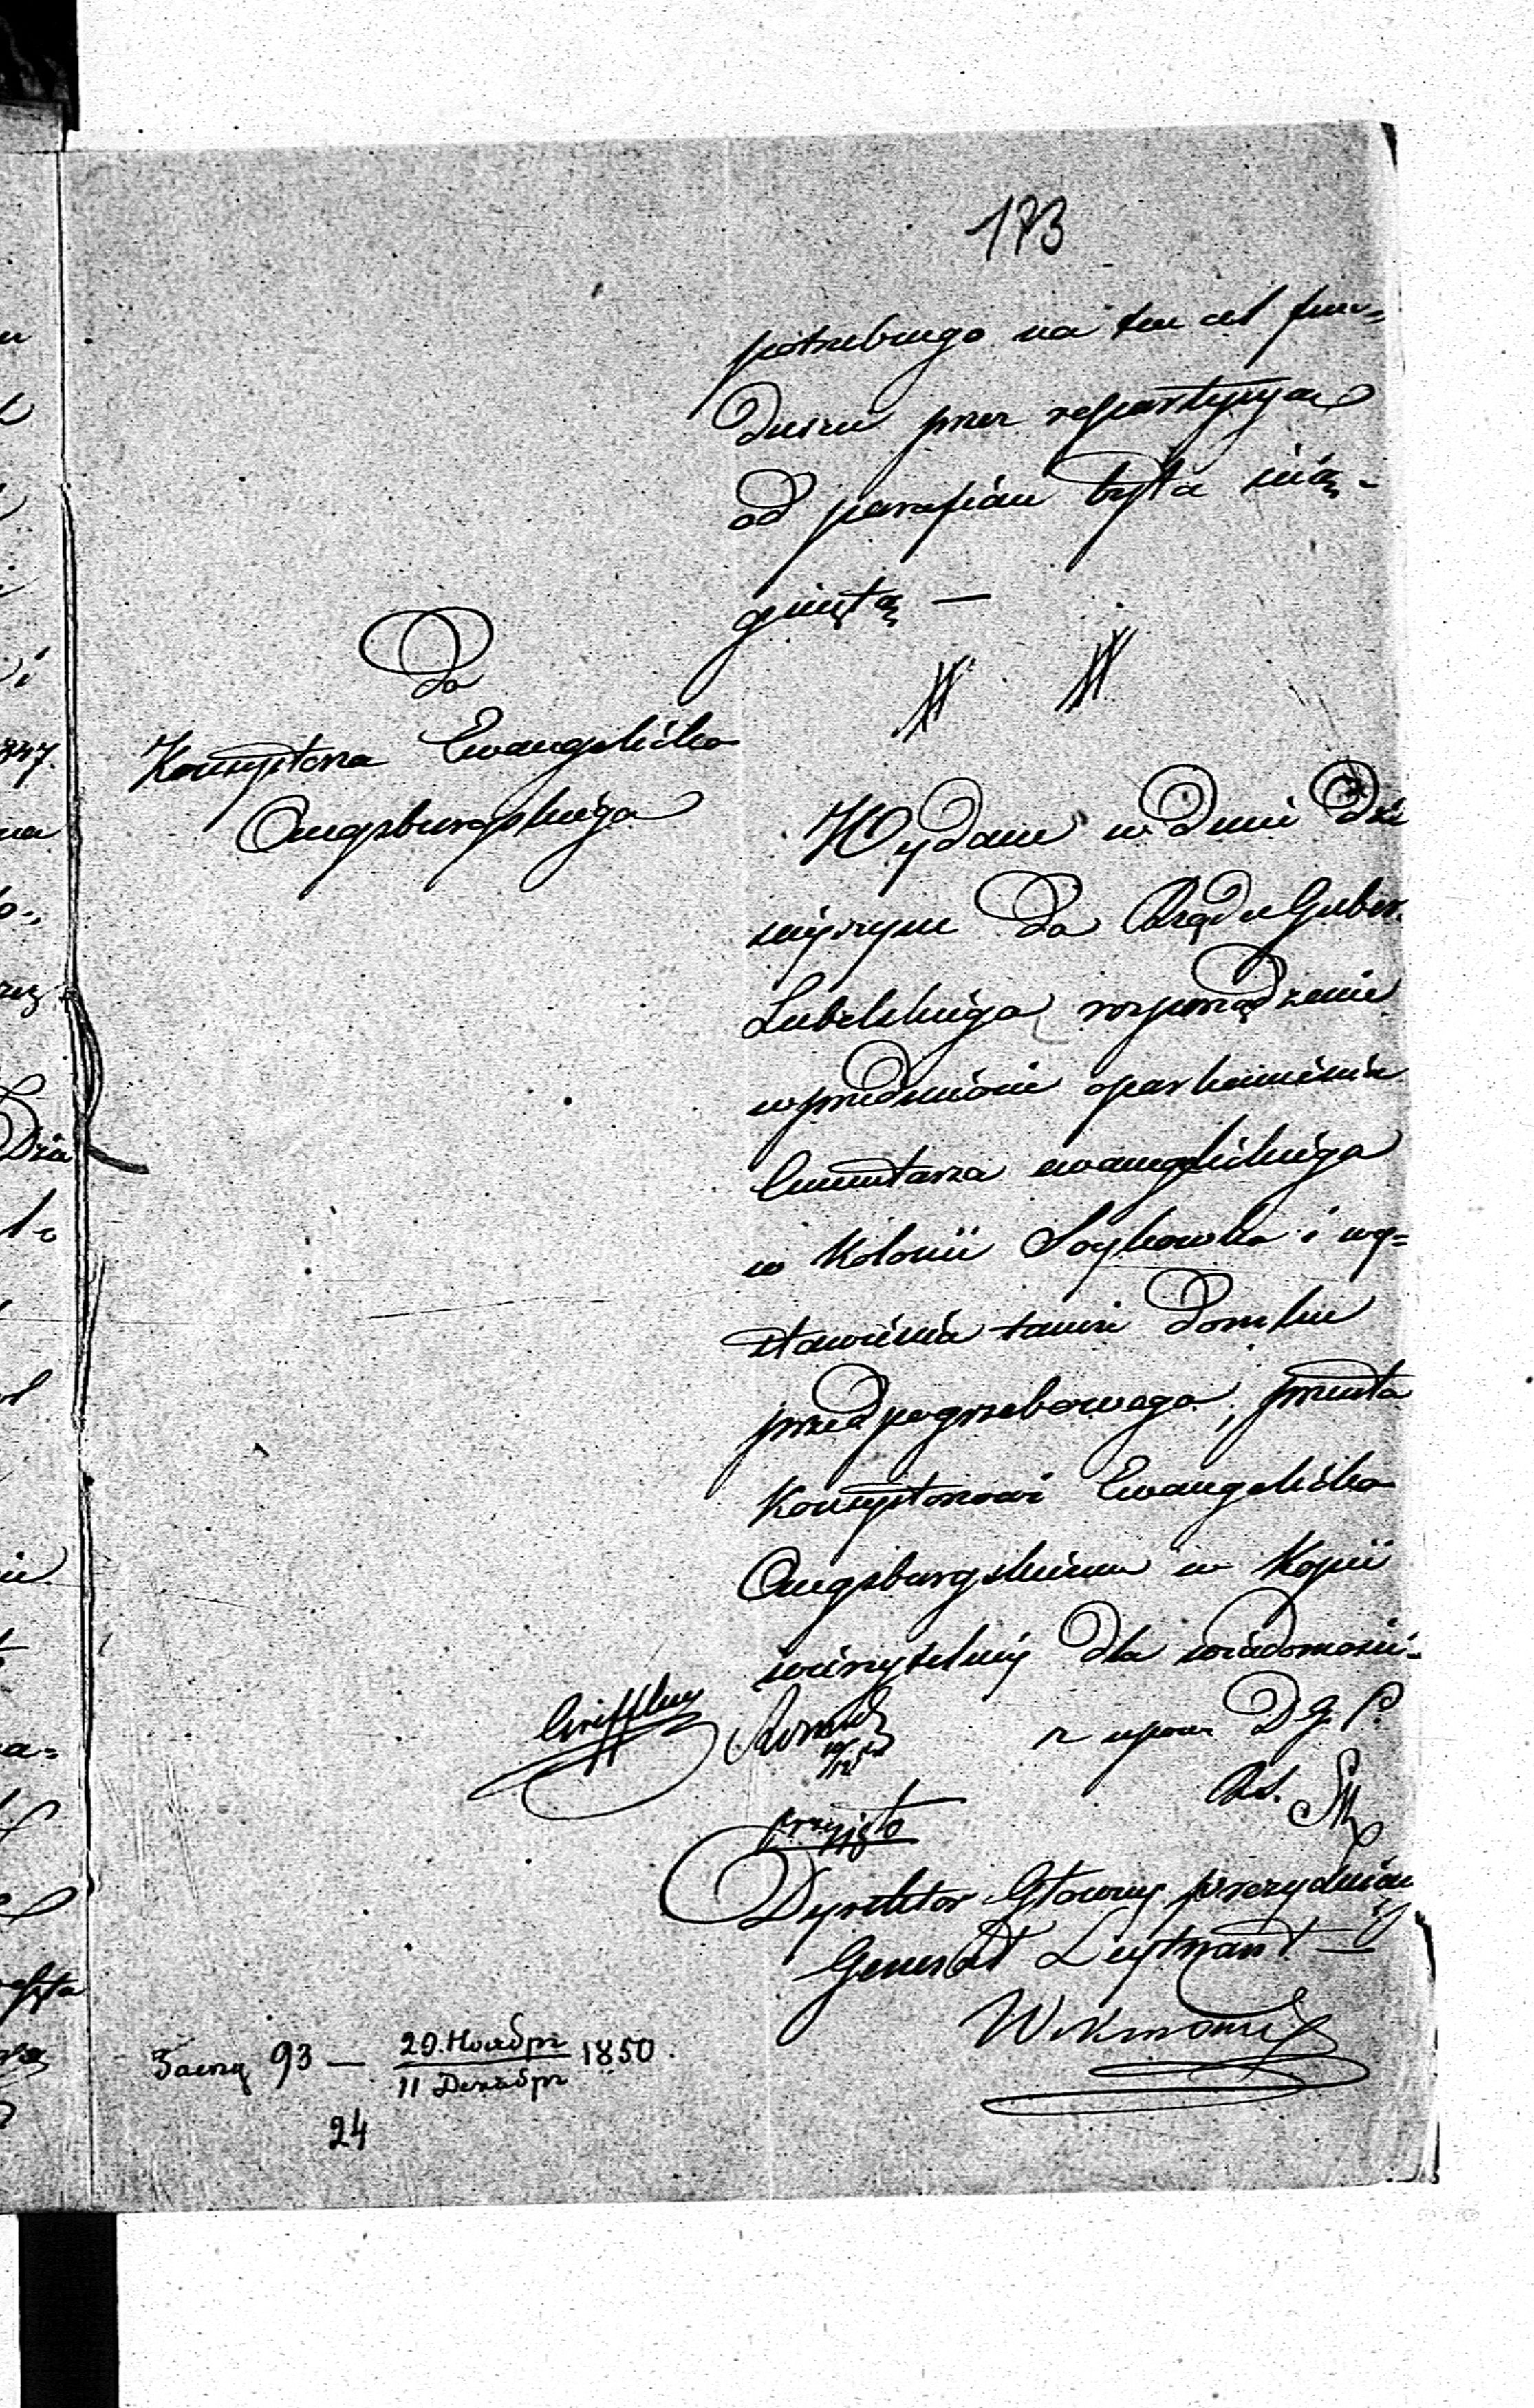 173
potrzebnego na ten cel fun=
duszu przez repartycyą
od parafian była ścią-
gniętą —
Do
Konsystorza Ewangelicko
Augsburgskiego
Wydane w dniu dzi
siejszym do Rządu Guber.
Lubelskiego rozporządzenie
w przedmiocie oparkanienia
Cmentarza ewangelickiego
w Kolonii Soykowka i wy=
stawienia tamże domku
przedpogrzebowego, przesyła
Konsystorzowi Ewangelicko
Augsburgskiemu w Kopii
wierzytelnej dla wiadomości.
z upow D. G. P.
przyjęto
Dyrektor Główny prezydując
Generał Leytnant
93 — 29. Ноября / 11 Декабря 1850.
24